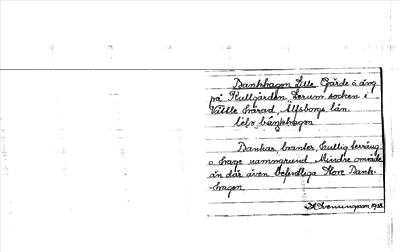 Dankhagen Lille Gärde o äng
på Hullgården Lerum socken i
Vättle härad, Älfsborgs län
Dankar, branter, kullig terräng
o. hage namngrund Mindre område
än där även befintliga Stora Dank-
-hagen.
1928